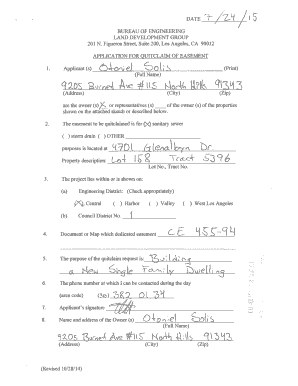 DATE 7/24/15
BUREAU OF ENGINEERING
LAND DEVELOPMENT GROUP
201 N. Figueroa Street, Suite 200, Los Angeles, CA 90012
APPLICATION FOR QUITCLAIM OF EASEMENT
1. Applicant (s) Otoniel Solis (Print)
(Full Name)
9205 Burnet Ave #115 North Hills 91343
(Address) (City) (Zip)
are the owner (s) X or representatives (s) of the owner (s) of the properties
shown on the attached sketch or described below.
2. The easement to be quitclaimed is for (X) sanitary sewer
( ) storm drain ( ) OTHER
purposes is located at 4701 Glenalbyn Dr.
Property description: Lot 168 Tract 5396
Lot No., Tract No.
3. The project lies within or is shown on:
(a) Engineering District: (Check appropriately)
(X) Central ( ) Harbor ( ) Valley ( ) West Los Angeles
(b) Council District No. 1
4. Document or Map which dedicated easement CE 455-94
5. The purpose of the quitclaim request is: Building
a New Single Family Dwelling
6. The phone number at which I can be contacted during the day
(area code) 382 01 34
7. Applicant's signature
8. Name and address of the Owner (s) Otoniel Solis
(Full Name)
9205 Burnet Ave #115 North Hills 91343
(Address) (City) (Zip)
(Revised 10/28/14)